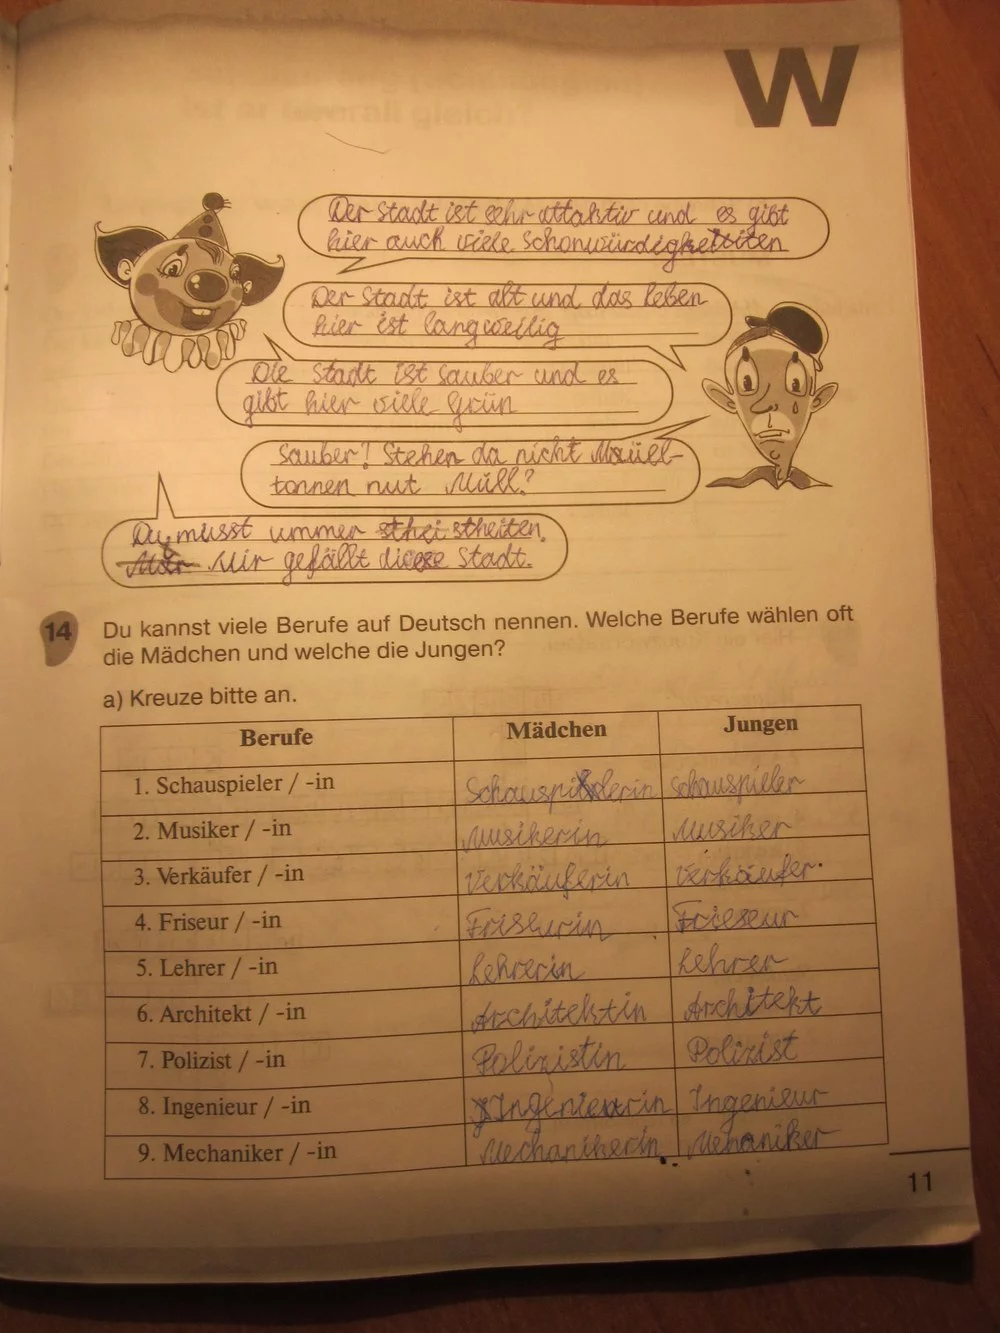 W
Der Stadt ist sehr attaktiv und es gibt
hier auch viele Schonwürdigkeititen
Der Stadt ist alt und das leben
hier ist langweilig
Die Stadt ist sauber und es
gibt hier viele Grün
Sauber! Stehen da nicht Müll-
tonnen nut Müll?
Du musst ummer stheiten.
Mir gefällt diese Stadt.
14 Du kannst viele Berufe auf Deutsch nennen. Welche Berufe wählen oft
die Mädchen und welche die Jungen?
a) Kreuze bitte an.
Berufe Mädchen Jungen
1. Schauspieler / -in Schauspielerin Schauspieler
2. Musiker / -in Musikerin Musiker
3. Verkäufer / -in Verkäuferin Verkäufer
4. Friseur / -in Friseurin Frieseur
5. Lehrer / -in Lehrerin Lehrer
6. Architekt / -in Architektin Architekt
7. Polizist / -in Polizistin Polizist
8. Ingenieur / -in Ingenieurin Ingenieur
9. Mechaniker / -in Mechanikerin Mehaniker
11